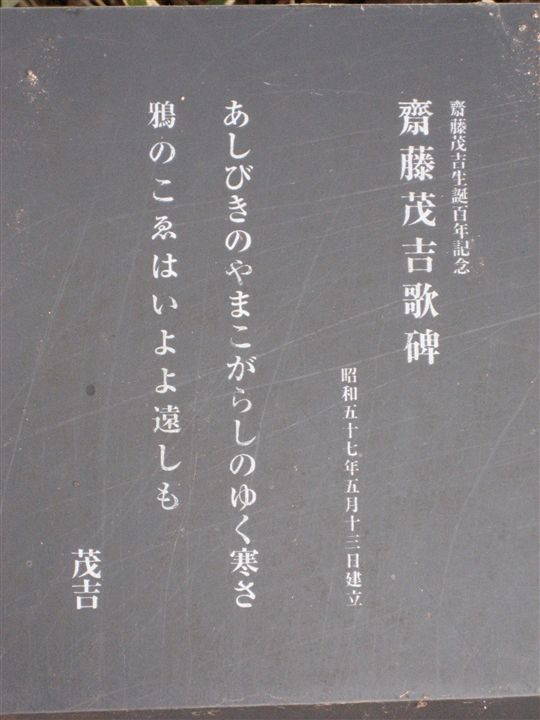 齋藤茂吉生誕百年記念
齋藤茂吉歌碑
昭和五十七年五月十三日建立
あしびきのやまこがらしのゆく寒さ
鴉のこゑはいよよ遠しも
茂吉